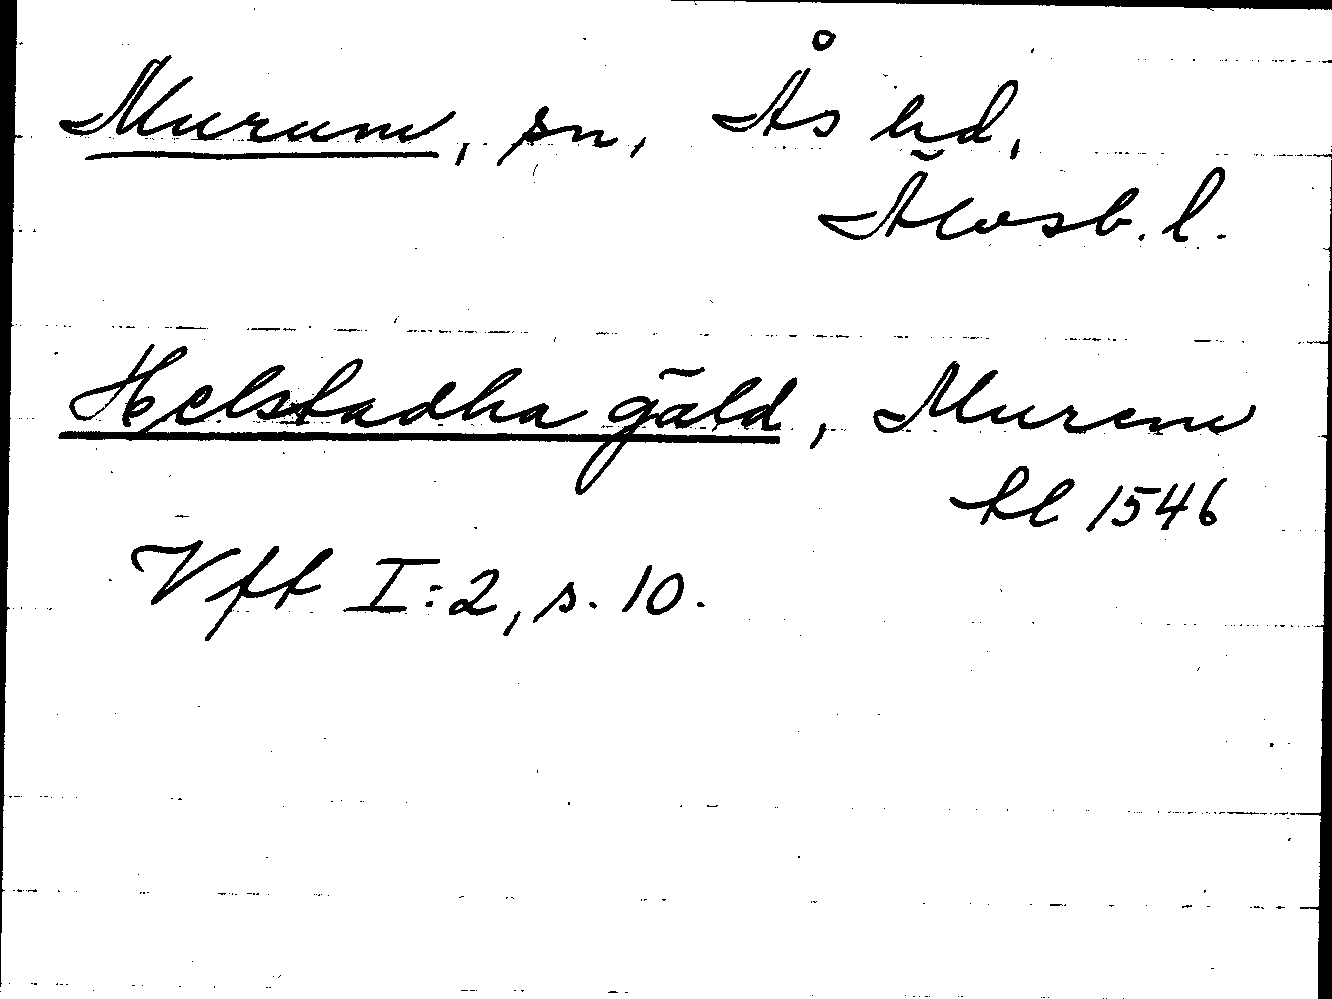 Murum, sn, Ås hd,
Älvsb. l.
Helstadha gäld, Murem
tl 1546
Vft I:2, s. 10.